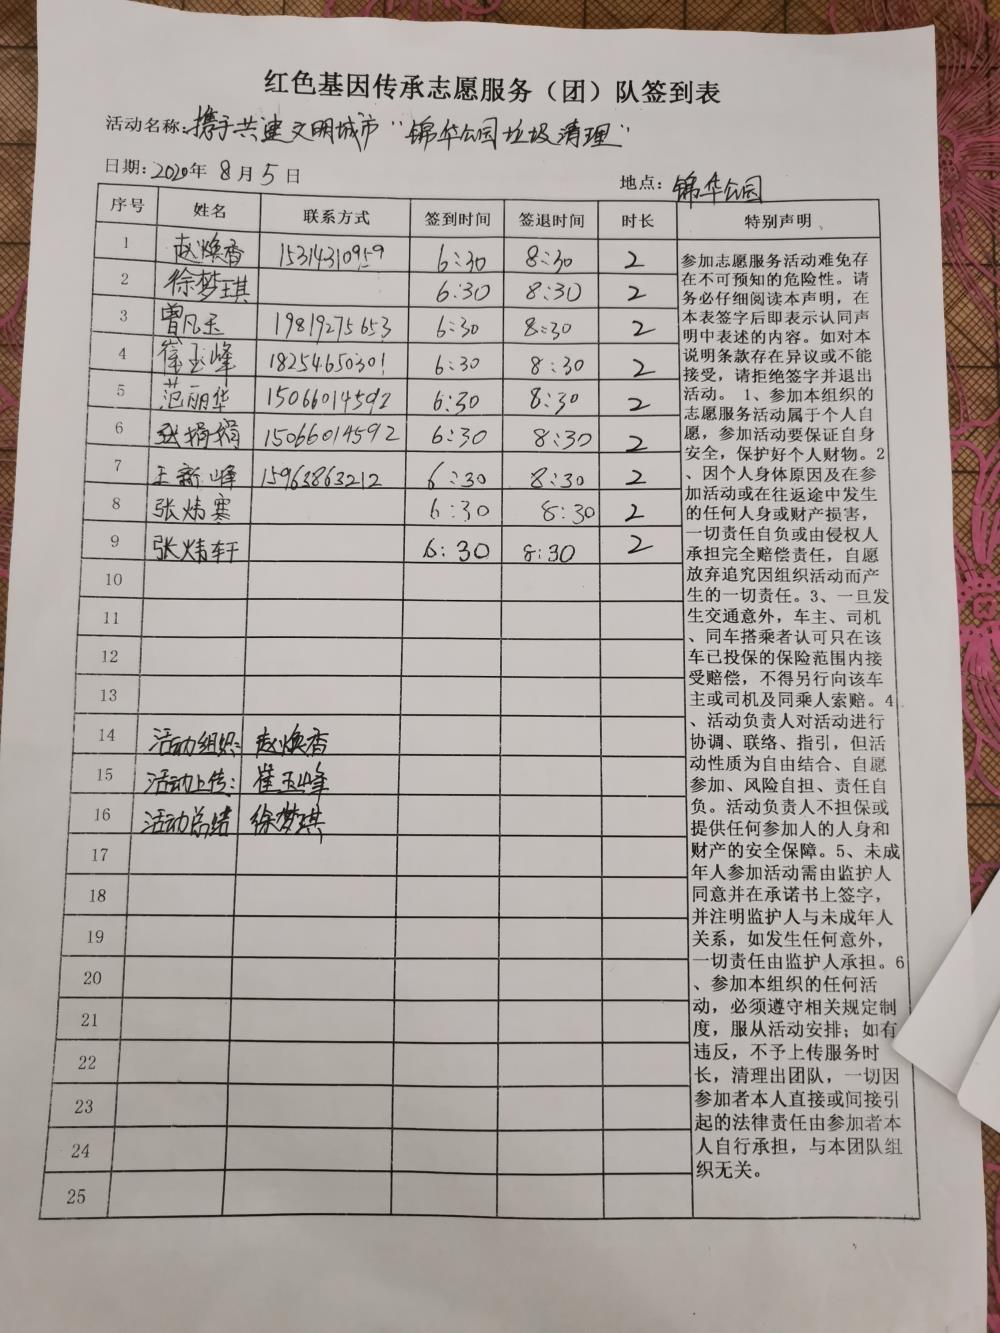 红色基因传承志愿服务（团）队签到表
活动名称:携手共建文明城市"锦华公园垃圾清理"
日期:2020年8月5日 地点:锦华公园
序号 姓名 联系方式 签到时间 签退时间 时长 特别声明
1 赵焕香 15314310959 6:30 8:30 2
2 徐梦琪 6:30 8:30 2
3 曾凡玉 19819275653 6:30 8:30 2
4 崔玉峰 18254650301 6:30 8:30 2
5 范丽华 15066014592 6:30 8:30 2
6 张娟娟 15066014592 6:30 8:30 2
7 王新峰 15963863212 6:30 8:30 2
8 张炜寒 6:30 8:30 2
9 张炜轩 6:30 8:30 2
10
11
12
13
14 活动组织: 赵焕香
15 活动上传: 崔玉峰
16 活动总结 徐梦琪
17
18
19
20
21
22
23
24
25
参加志愿服务活动难免存
在不可预知的危险性。请
务必仔细阅读本声明，在
本表签字后即表示认同声
明中表述的内容。如对本
说明条款存在异议或不能
接受，请拒绝签字并退出
活动。 1、参加本组织的
志愿服务活动属于个人自
愿，参加活动要保证自身
安全，保护好个人财物。2
、因个人身体原因及在参
加活动或在往返途中发生
的任何人身或财产损害，
一切责任自负或由侵权人
承担完全赔偿责任，自愿
放弃追究因组织活动而产
生的一切责任。3、一旦发
生交通意外，车主、司机
、同车搭乘者认可只在该
车已投保的保险范围内接
受赔偿，不得另行向该车
主或司机及同乘人索赔。4
、活动负责人对活动进行
协调、联络、指引，但活
动性质为自由结合、自愿
参加、风险自担、责任自
负。活动负责人不担保或
提供任何参加人的人身和
财产的安全保障。5、未成
年人参加活动需由监护人
同意并在承诺书上签字，
并注明监护人与未成年人
关系，如发生任何意外，
一切责任由监护人承担。6
、参加本组织的任何活
动，必须遵守相关规定制
度，服从活动安排；如有
违反，不予上传服务时
长，清理出团队，一切因
参加者本人直接或间接引
起的法律责任由参加者本
人自行承担，与本团队组
织无关。